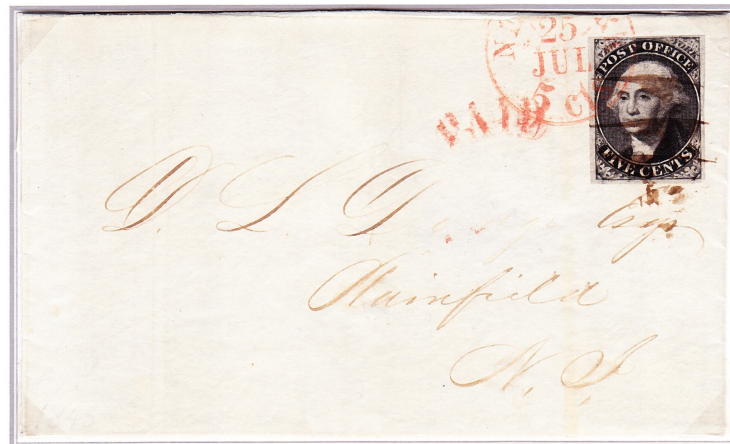 25
JUL
5 cts
PAID
POST OFFICE
FIVE CENTS
D. S. Esqr
Plainfield
N. J.